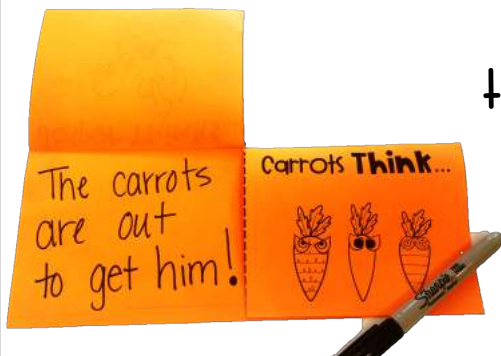 The carrots
are out
to get him!
Carrots Think...
Sharpie